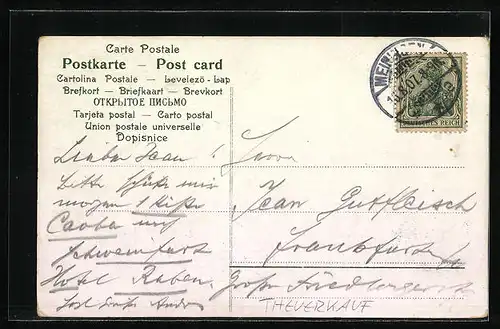 Carte Postale
Postkarte — Post card
Cartolina Postale — Levelező-Lap
Brefkort — Briefkaart — Brevkort
ОТКРЫТОЕ ПИСЬМО
Tarjeta postal — Carto postal
Union postale universelle
Dopisnice
MEININGEN
DEUTSCHES REICH
Lieber Jean!
Bitte schicke mir
morgen 1 Kiste
Caoba auf
Schweinfurt
Hotel Raben
Herrn
Jean Gutfleisch
Frankfurt
Große Friedberger
THEVERKAUF